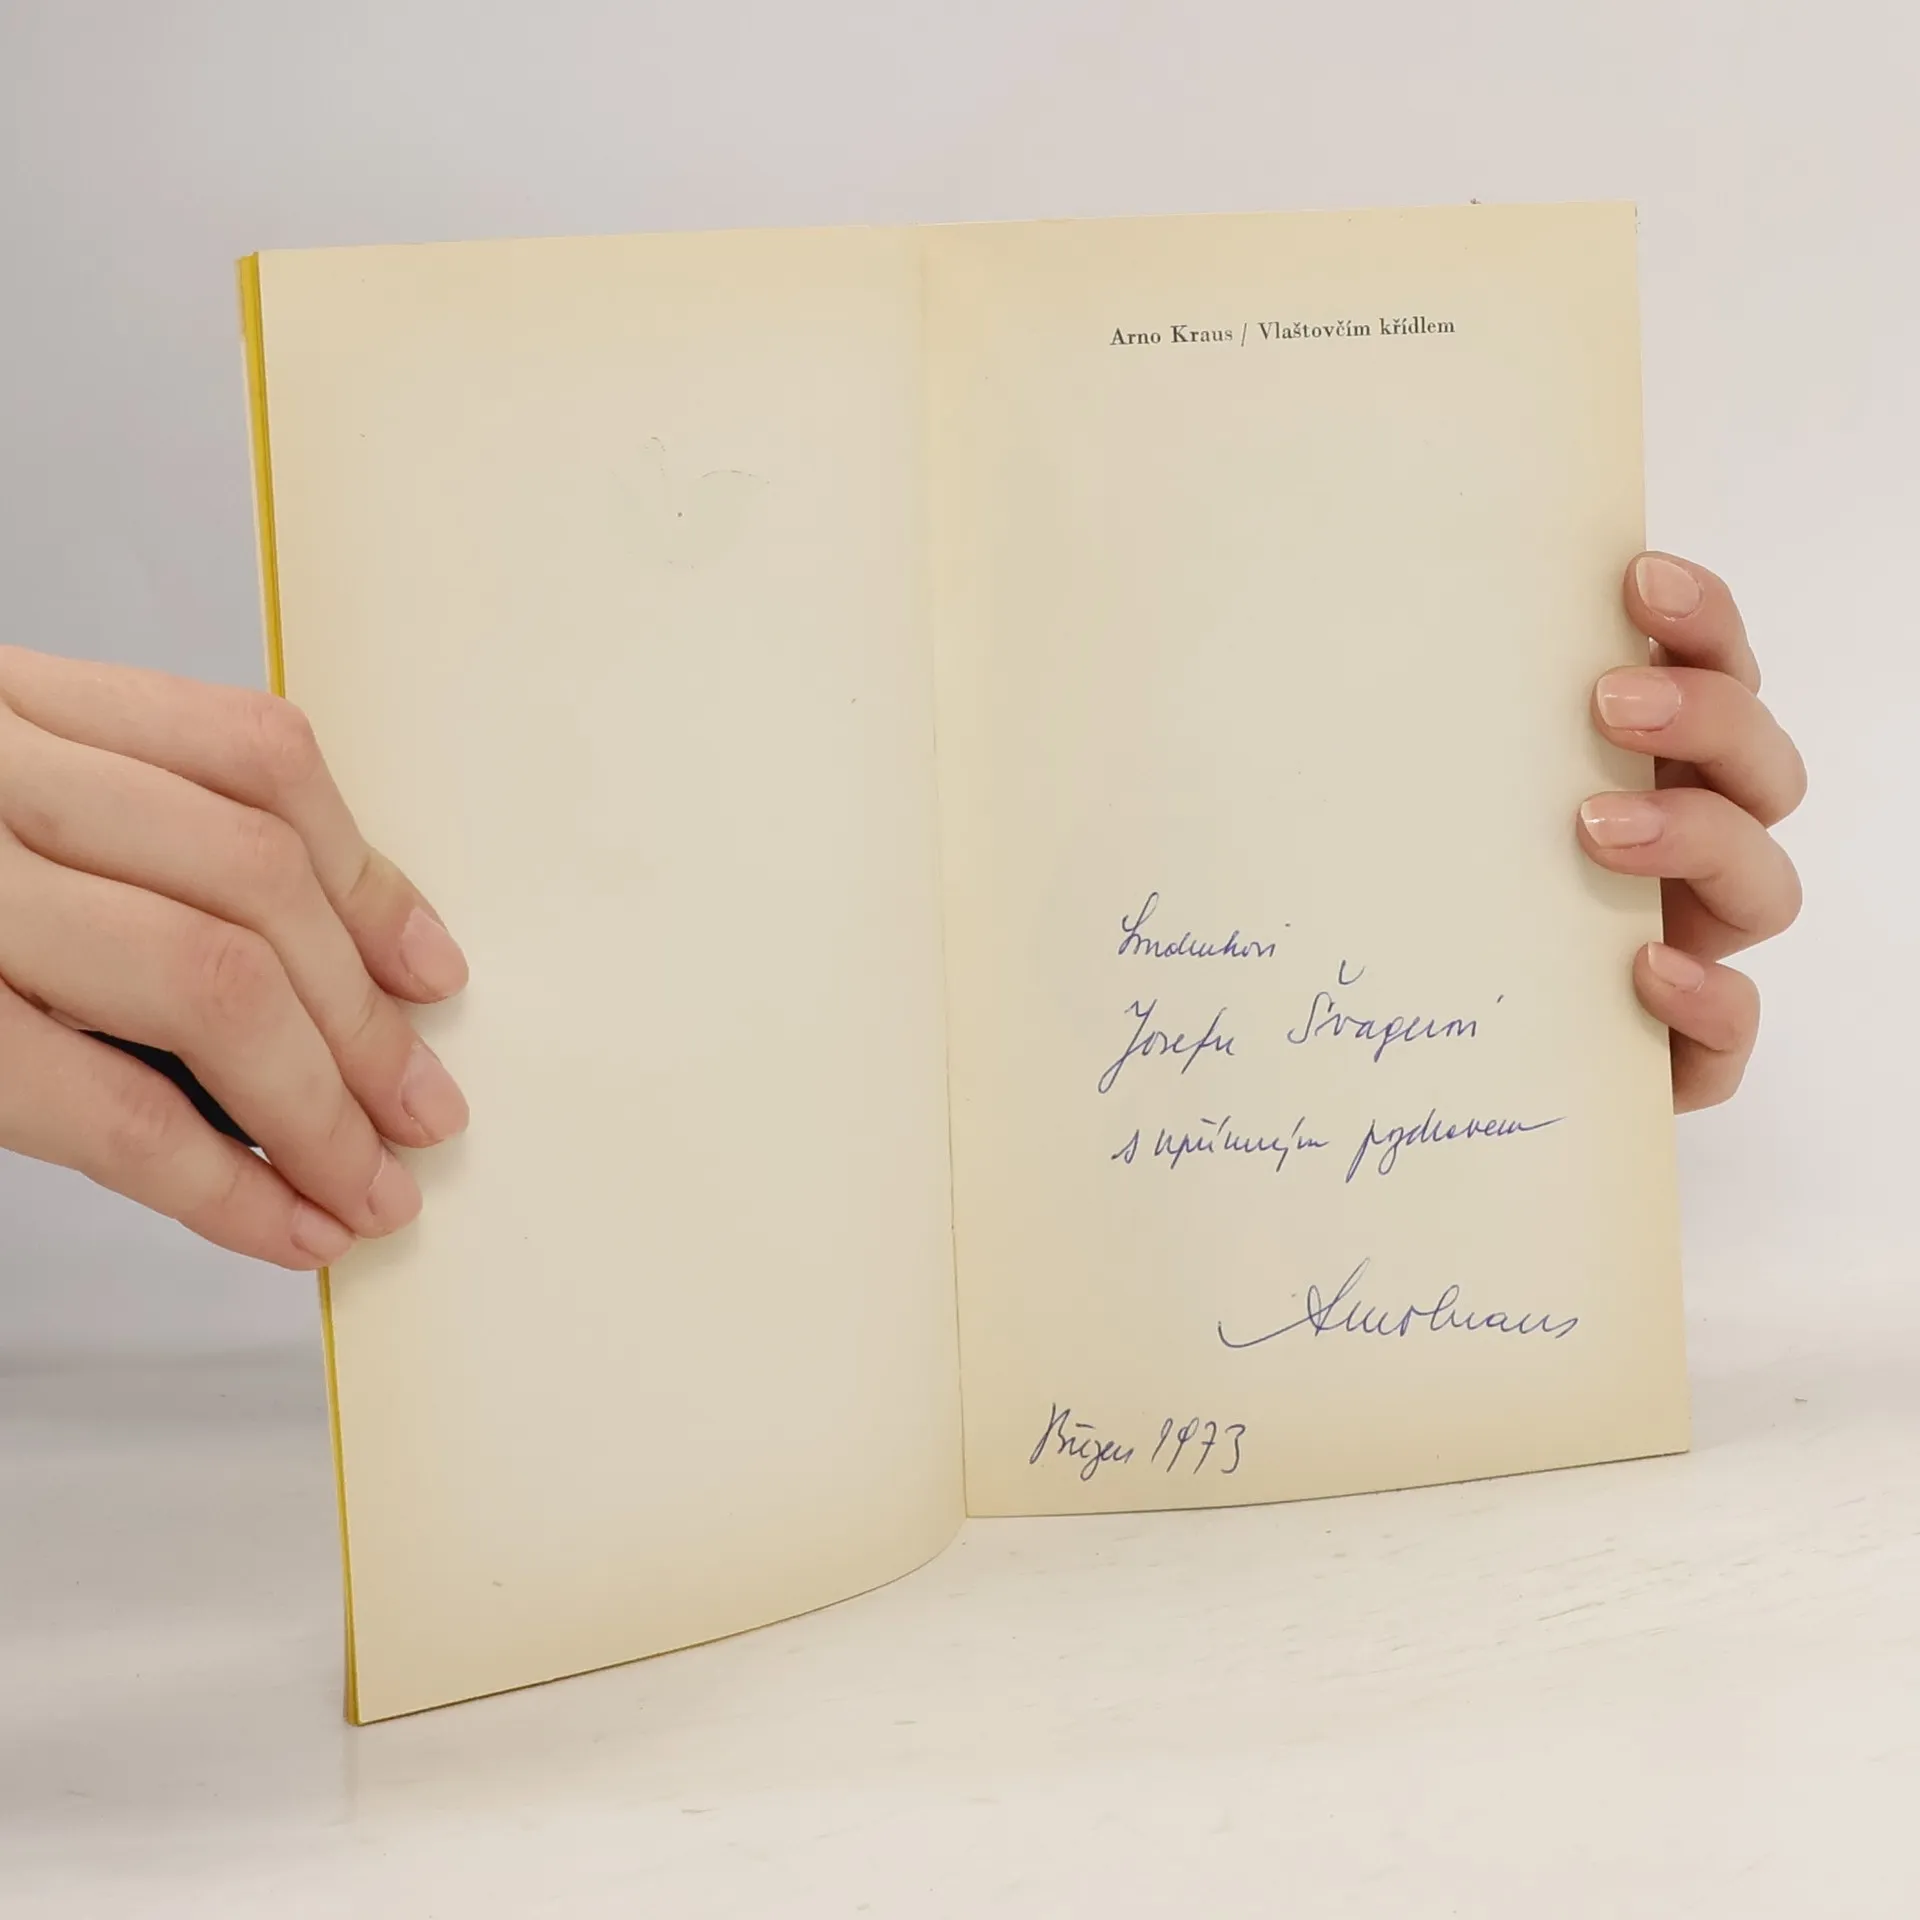 Arno Kraus / Vlaštovčím křídlem
Soudruhovi
Josefu Švagerovi
s upřímným pozdravem
Arno Kraus
Březen 1973